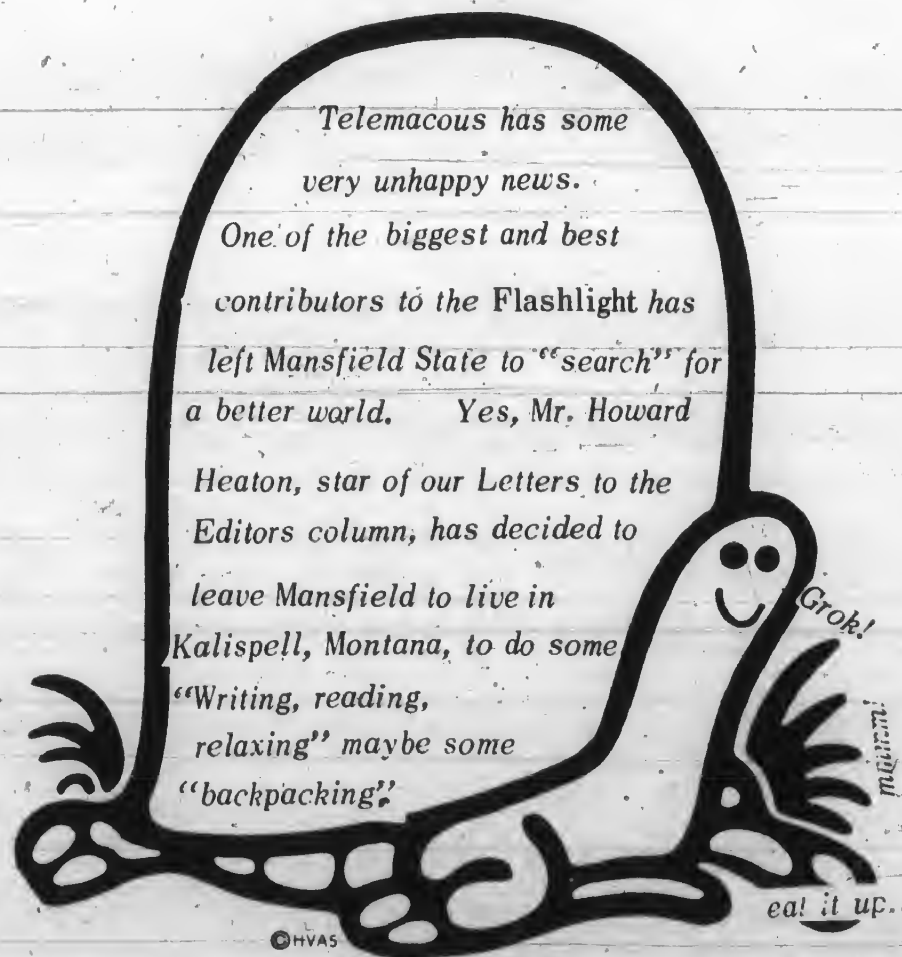 Telemacous has some
very unhappy news.
One of the biggest and best
contributors to the Flashlight has
left Mansfield State to "search" for
a better world. Yes, Mr. Howard
Heaton, star of our Letters to the
Editors column, has decided to
leave Mansfield to live in
Kalispell, Montana, to do some
"Writing, reading,
relaxing" maybe some
"backpacking".
Grok!
eat it up.
©HVAS